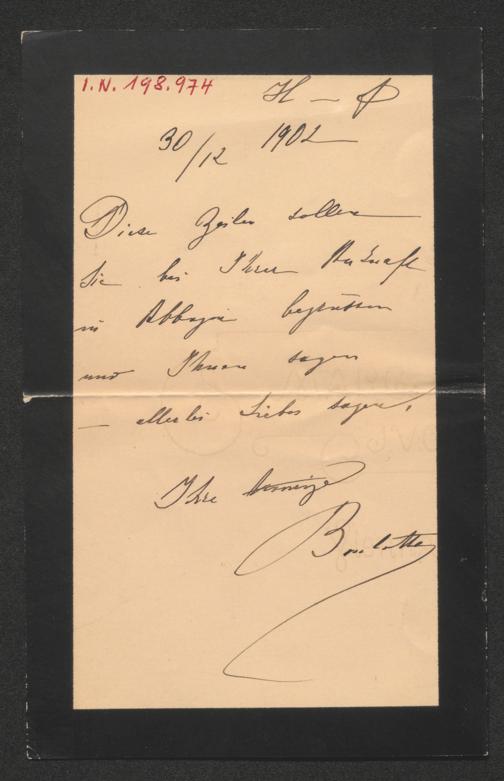 I.N. 198.974
H – 
30/12 1902
Diese Zeilen sollen
Sie bei Ihrer Ankunft
in Abbazia begrüssen
und Ihnen sagen
– allerlei Liebes sagen.
Ihre